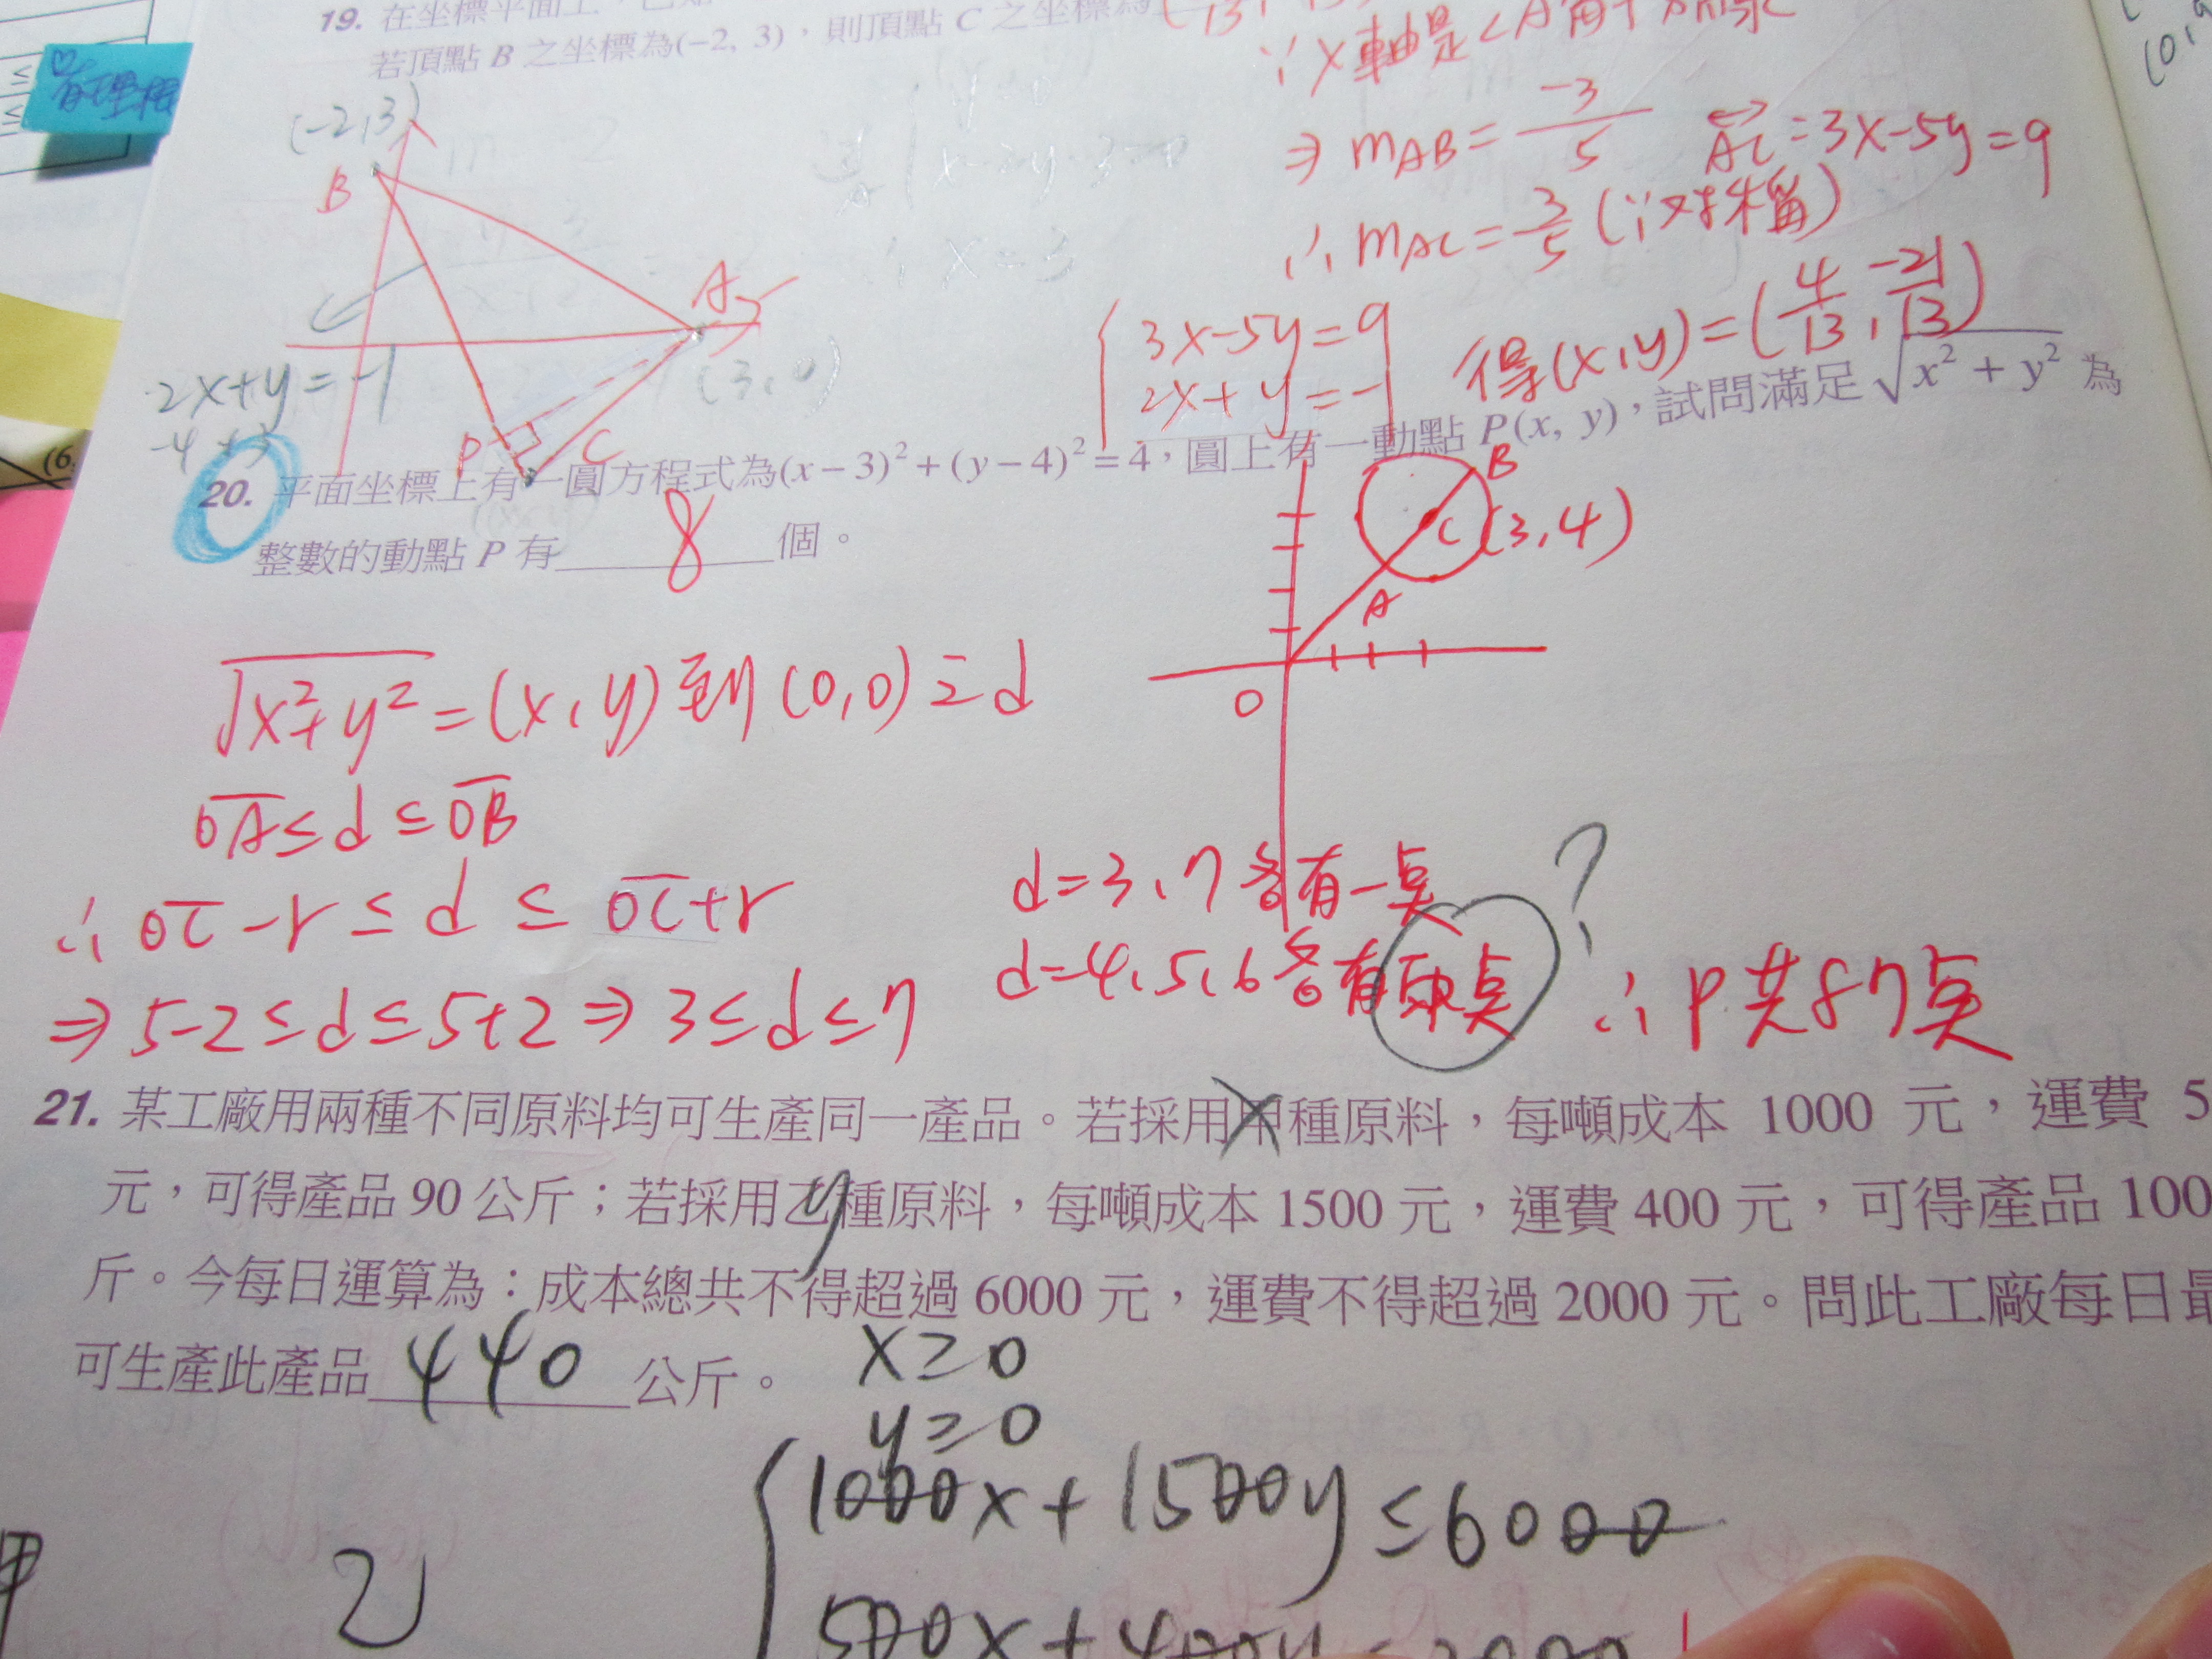 19. 在坐標平面上，已知
若頂點 B 之坐標為(−2, 3)，則頂點 C 之坐標為
∵ X軸是∠A角平分線
(-2,3)
B
A
(3,0)
2x+y=-1
-4+3
P
C
x=3
⇒ mAB = -3/5
AC = 3x-5y=9
∴ mAC = 3/5 (∵对稱)
3x-5y=9
2x+y=-1
得(x,y)=(4/13, -21/13)
20. 平面坐標上有一圓方程式為(x − 3)² + (y − 4)² = 4，圓上有一動點 P(x, y)，試問滿足√x² + y² 為
整數的動點 P 有 8 個。
B
C (3,4)
A
O
√x²+y² = (x,y) 到 (0,0) 之d
OA ≤ d ≤ OB
∴ OC - r ≤ d ≤ OC+r
⇒ 5-2 ≤ d ≤ 5+2 ⇒ 3 ≤ d ≤ 7
d=3,7 各有一点
d=4,5,6各有兩点 ?
∴ P共8个点
21. 某工廠用兩種不同原料均可生產同一產品。若採用甲種原料，每噸成本 1000 元，運費 5
x
元，可得產品 90 公斤；若採用乙種原料，每噸成本 1500 元，運費 400 元，可得產品 100
y
斤。今每日運算為：成本總共不得超過 6000 元，運費不得超過 2000 元。問此工廠每日最
可生產此產品 440 公斤。
x≥0
y≥0
1000x+1500y≤6000
500x+400y≤2000
甲 乙